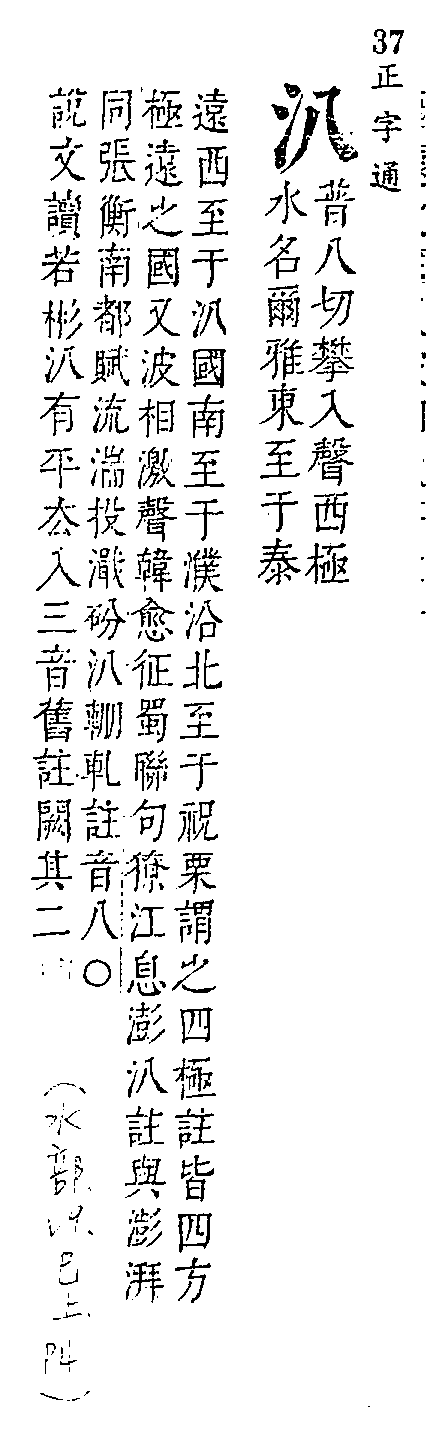 37
正字通
汃
普八切攀入聲西極
水名爾雅東至于泰
遠西至于汃國南至于濮沿北至于祝栗謂之四極註皆四方
極遠之國又波相激聲韓愈征蜀聯句獠江息澎汃註與澎湃
同張衡南都賦流湍投濈砏汃輣軋註音八〇
說文讀若彬汃有平去入三音舊註闕其二
(水部 巳上